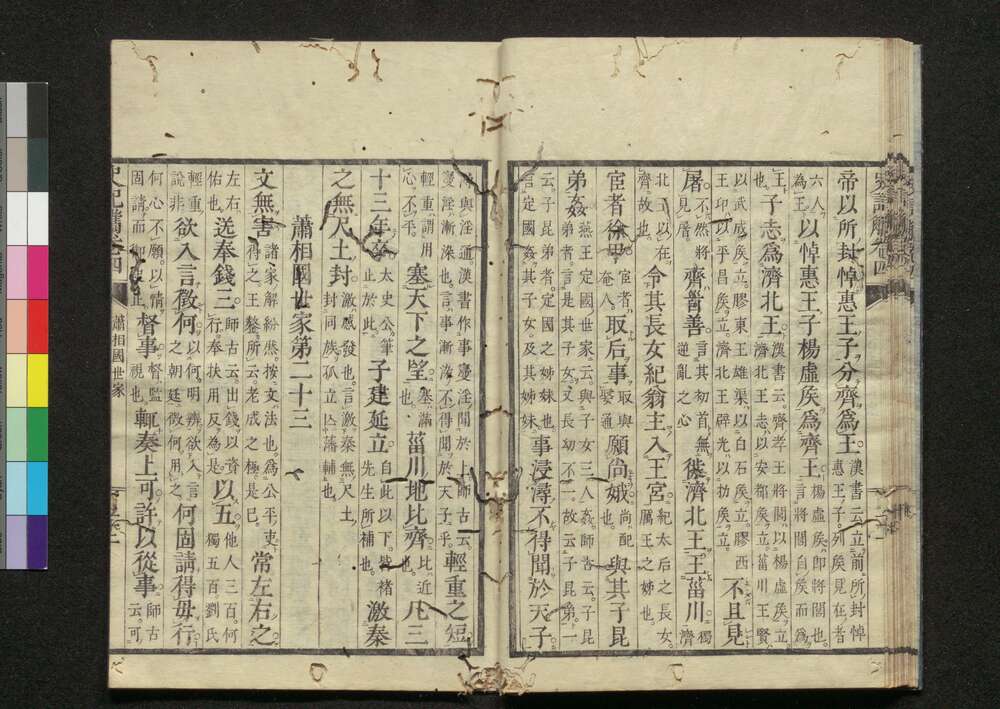 帝以所封悼惠王子分齊為王漢書云立前所封悼惠王子列矦見在者
六人為王以悼惠王子楊虛矦為齊王楊虛矦即將閭也言將閭自矦而為
王子志為濟北王漢書云齊孝王將閭以楊虛矦立濟北王志以安都矦立菑川王賢
以武成矦立膠東王雄渠以白石矦立膠西王卭以平昌矦立濟北王辟光以扐矦立不且見
屠不然將見屠齊舋善言其初首無逆亂之心徙濟北王王菑川獨濟
北王以在齊故也令其長女紀翁主入王宮紀太后之長女厲王之姊也
宦者徐甲宦者奄人取后事取與娶通願尚娥尚配也與其子昆
弟姦燕王定國世家云與子女三人姦師古云子昆弟者言是其子女又長幼不一故云子昆弟一
云子昆弟者定國之姊妹也言定國姦其子女及其姊妹事浸潯不得聞於天子
潯與淫通漢書作事寖淫聞於上師古云寖淫漸染也言事漸染不得聞於天子乎輕重之短
輕重謂用心不乎塞天下之望塞滿也菑川地比齊比近也凡三
十三年卒太史公筆止於此子建延立自此以下皆褚先生所補也激秦
之無尺土封激感發也言激秦無尺土封同族孤立亾藩輔也
蕭相國世家第二十三
文無害諸家解紛然按文法也為公平吏得之王鏊所云老成之極是已常左右之
左右佑也送奉錢三師古云出錢以資行奉扶用反為是以五他人三百何獨五百劉氏
輕重說非欲入言徵何以何明辨欲入言之朝廷徵何用之何固請得毋行
何心不願以情固請而御史止督事督監視也輒奏上可許以從事師古云可
蕭相國世家